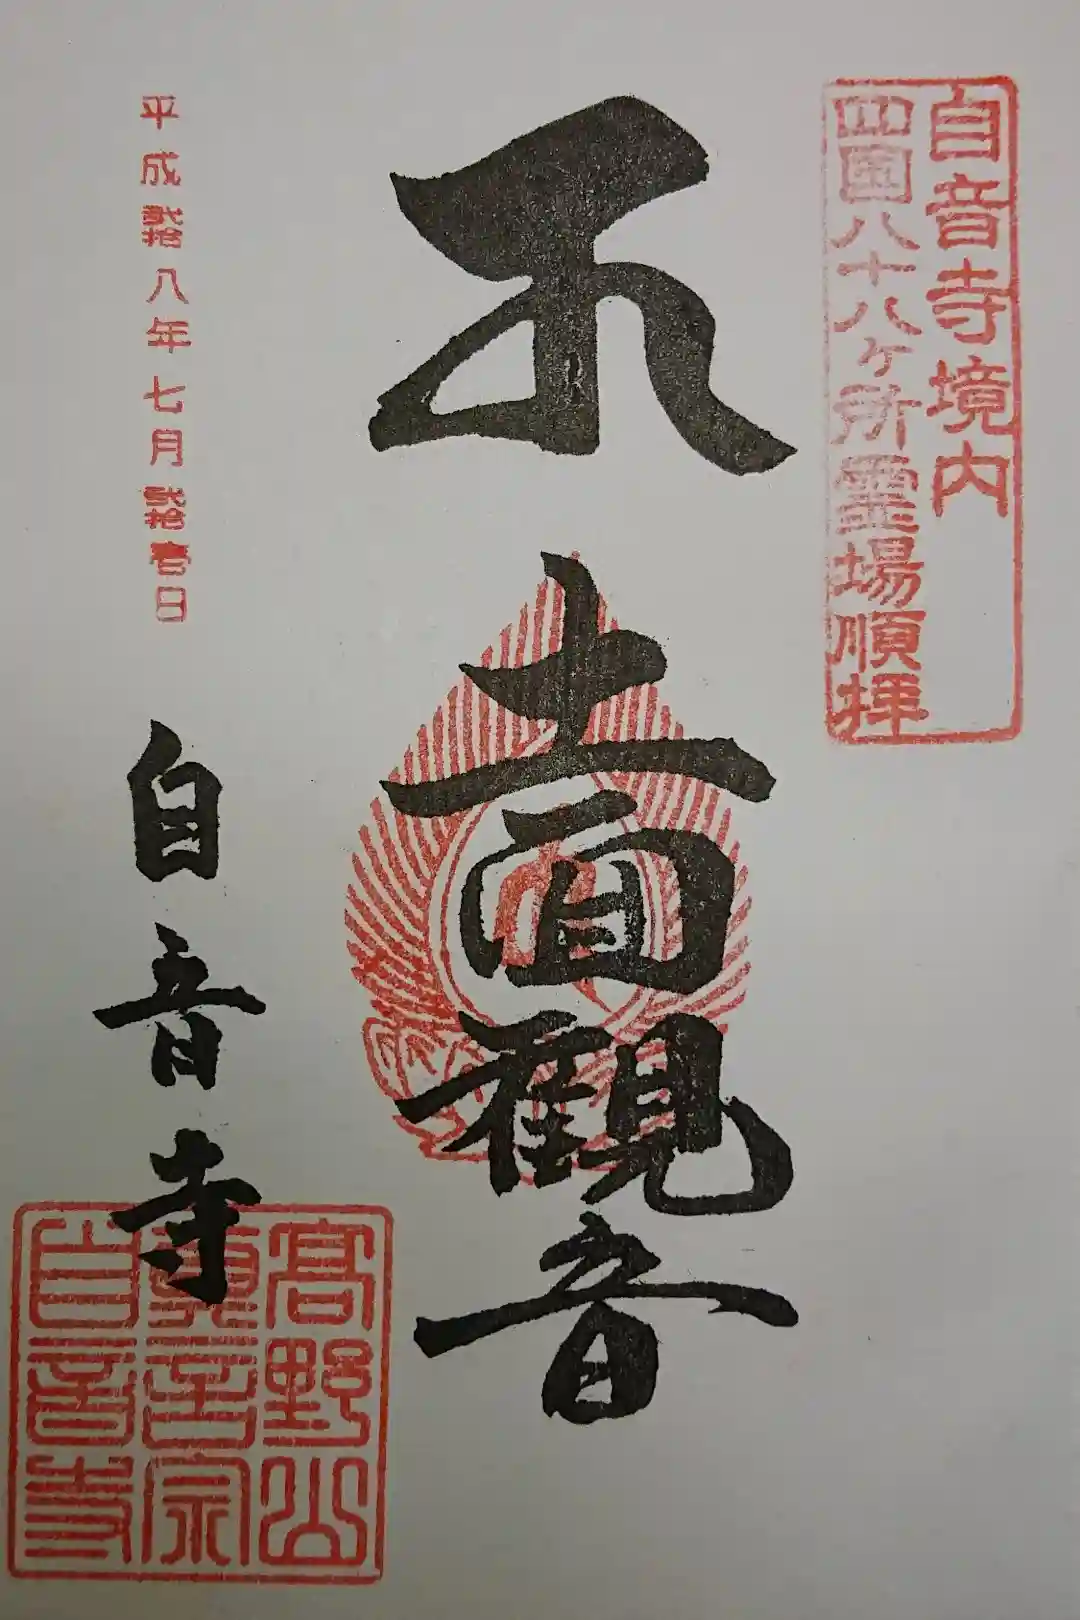 自音寺境内
四国八十八ヶ所霊場順拝
十一面觀音
平成弐拾八年七月弐拾壱日
自音寺
高野山
真言宗
自音寺